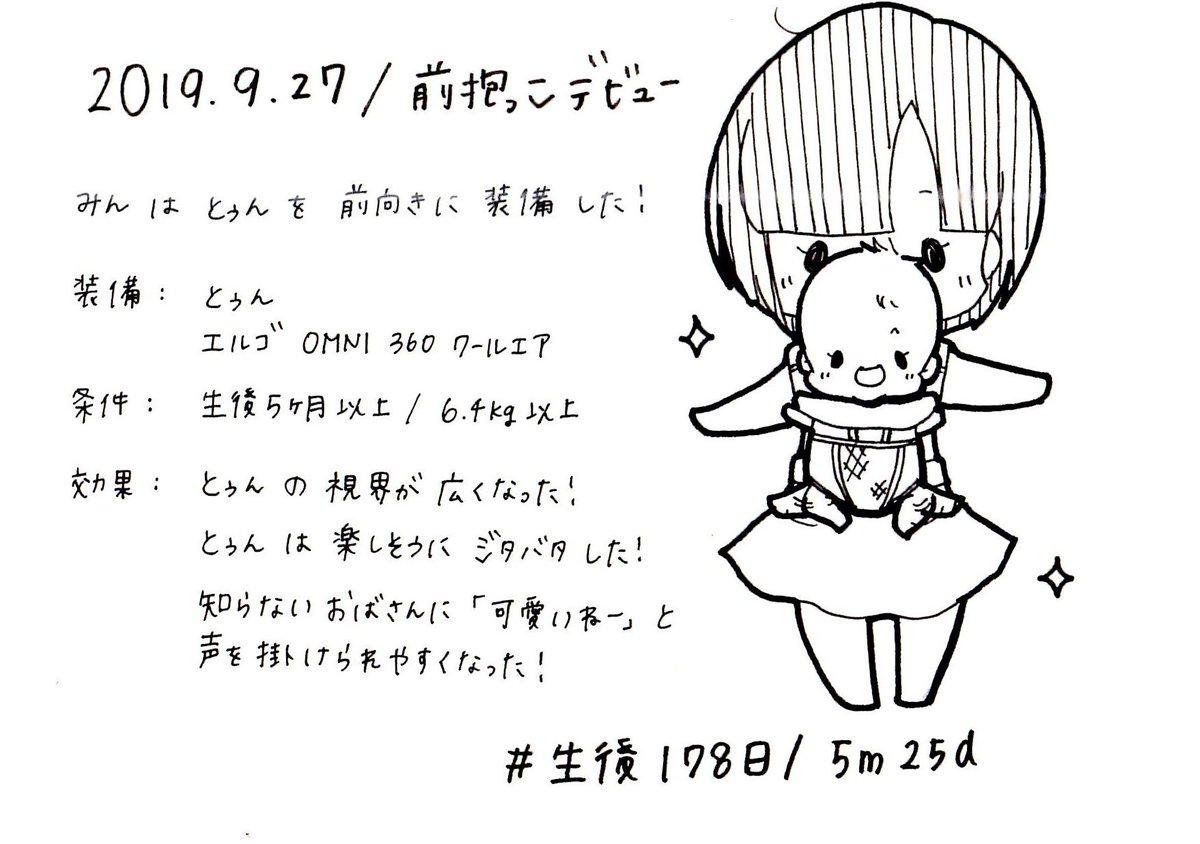 2019.9.27/前抱っこデビュー
みんは とぅんを 前向きに 装備した！
装備： とぅん
エルゴ OMNI 360 クールエア
条件： 生後5ヶ月以上 / 6.4kg以上
効果： とぅんの視界が広くなった！
とぅんは楽しそうにジタバタした！
知らないおばさんに「可愛いねー」と
声を掛けられやすくなった！
#生後178日/ 5m 25d